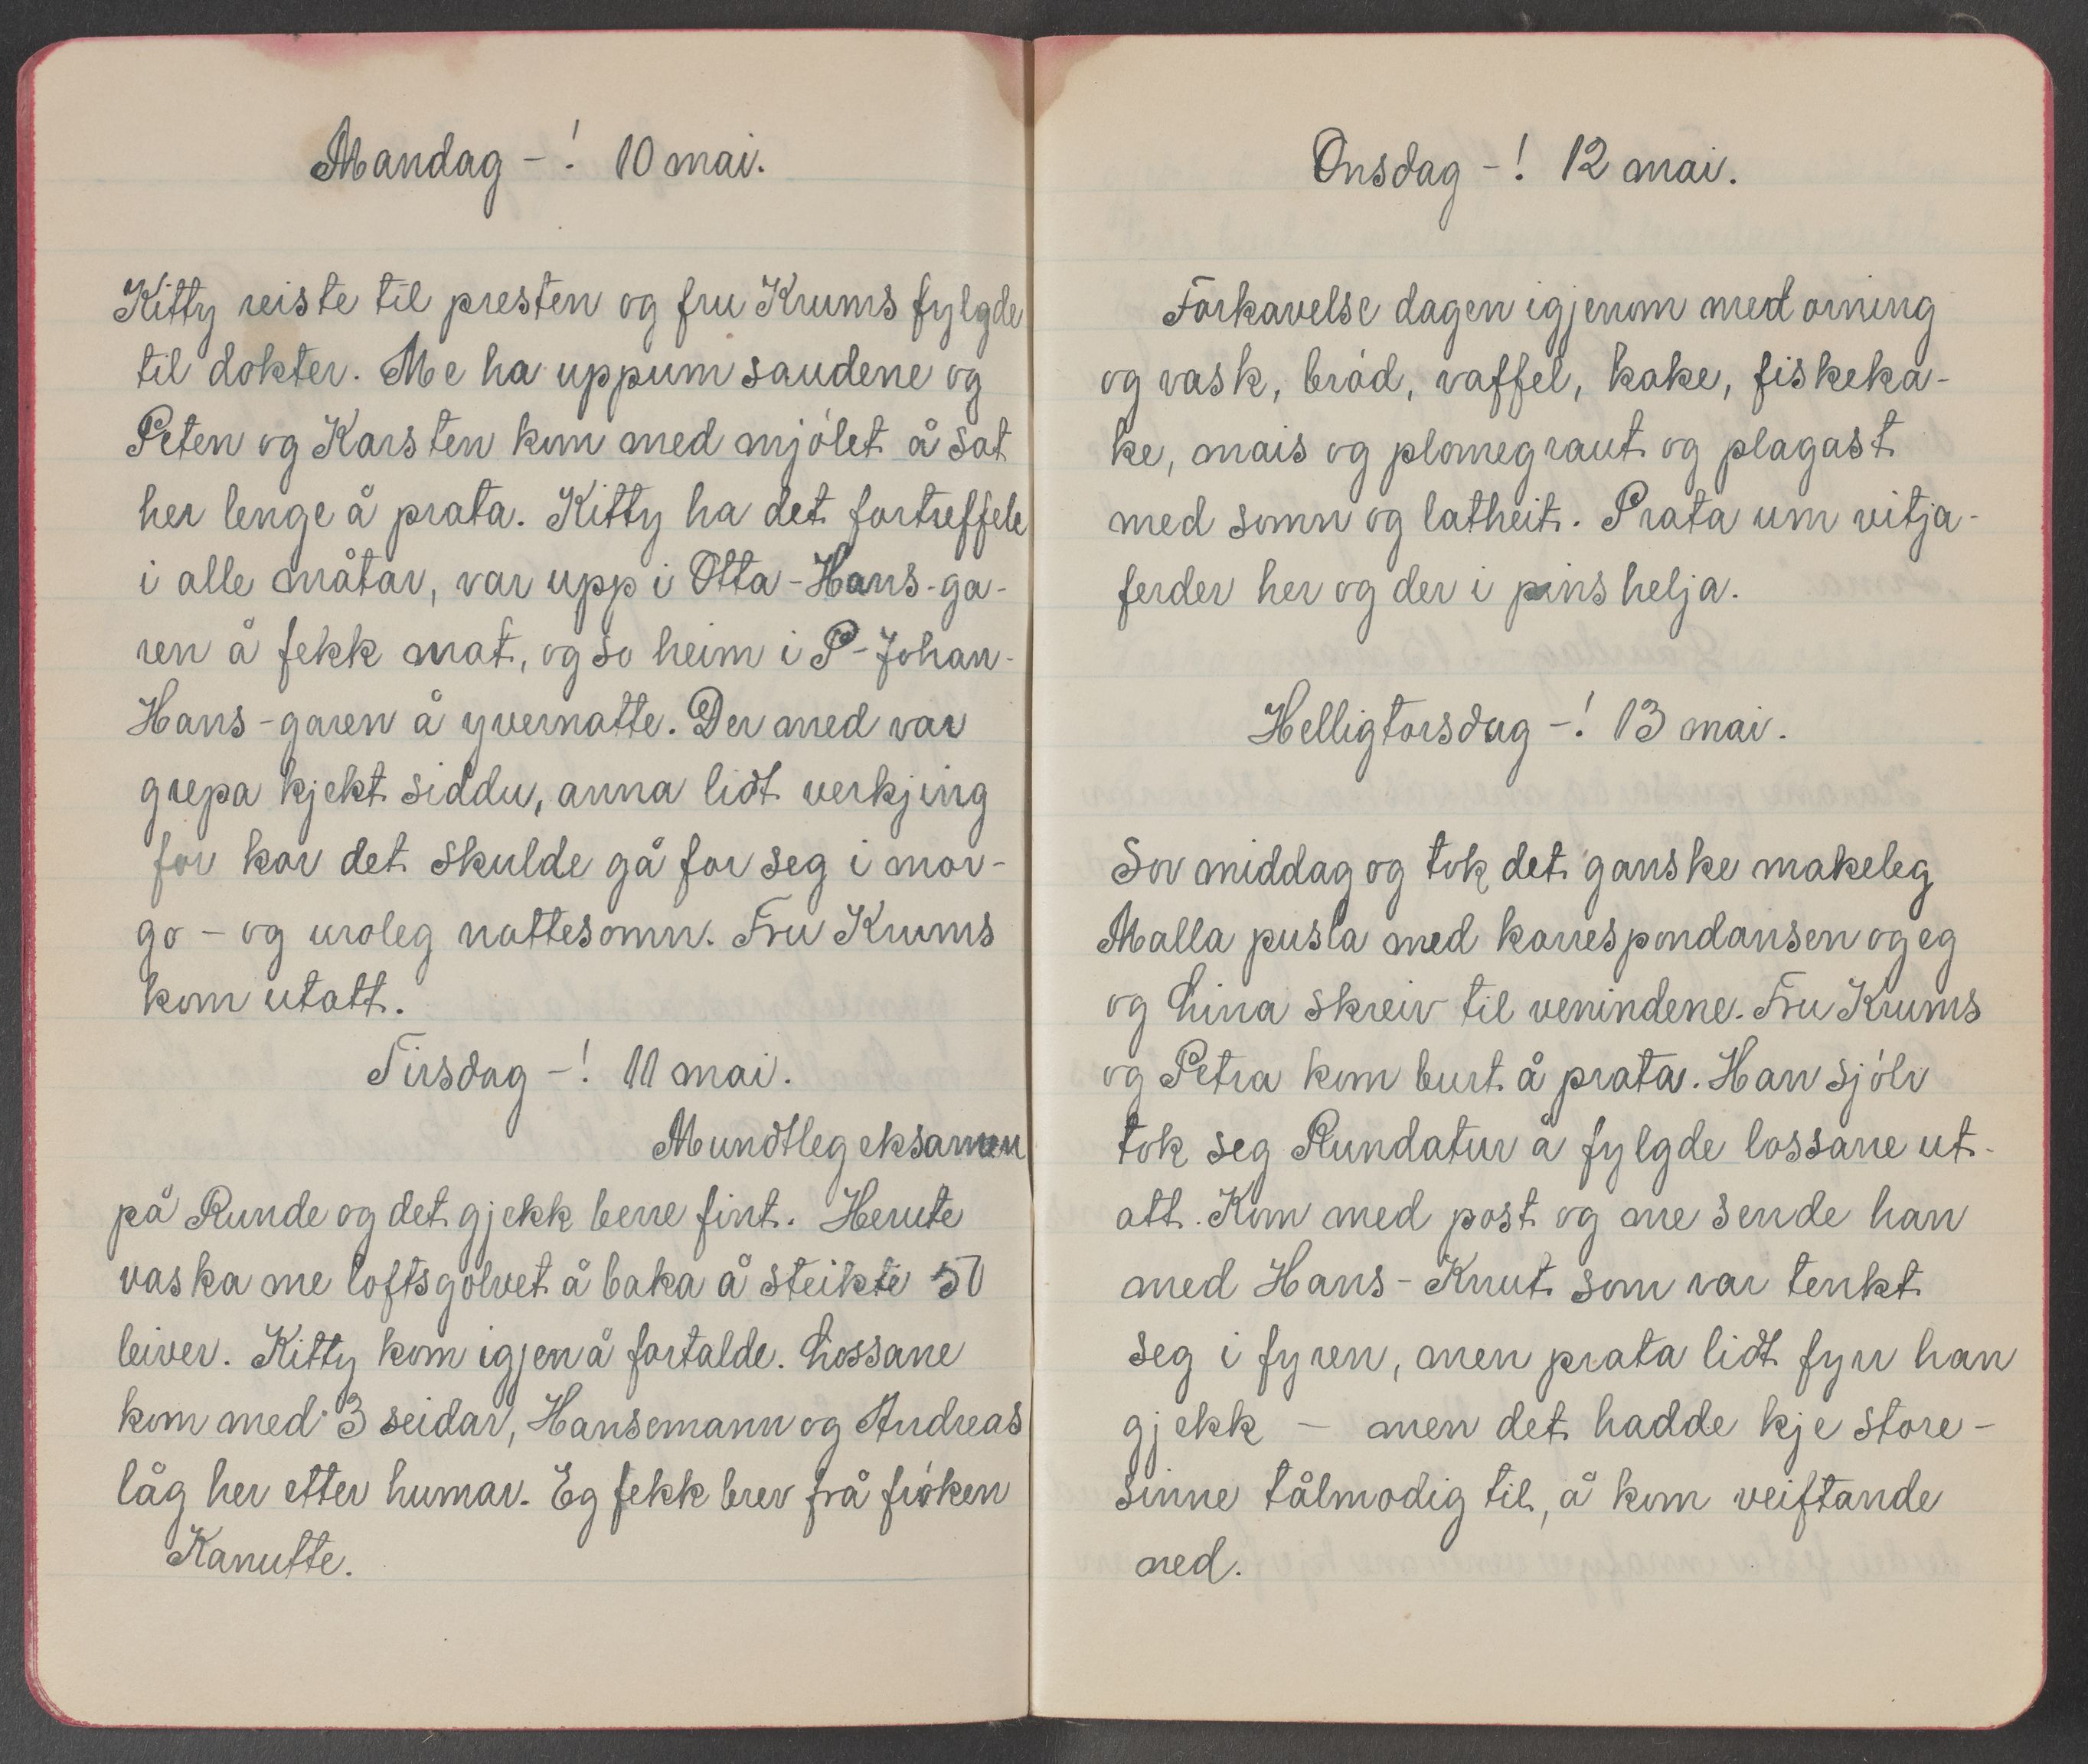 Mandag -! 10 mai.
Kitty reiste til presten og fru Krums fylgde
til dokter. Me ha uppum saudene og
Peten og Karsten kom med mjólet å sat
her lenge å prata. Kitty ha det fortreffele
i alle måtar, var upp i Otta-Hans-ga-
ren å fekk mat, og so heim i P-Johan-
Hans-garen å yvernatte. Der med var
grepa kjekt siddu, anna lidt verkjing
for kor det skulde gå for seg i mor-
go - og uroleg nattesomn. Fru Krums
kom utatt.
Tirsdag -! 11 mai.
Mundtleg eksamen
på Runde og det gjekk berre fint. Herute
vaska me loftsgolvet å baka å steikte 50
leiver. Kitty kom igjen å fortalde. Lossane
kom med 3 seidar, Hansemann og Andreas
låg her etter humar. Eg fekk brev frå fróken
Kanutte.
Onsdag -! 12 mai.
Forkavelse dagen igjenom med orning
og vask, bród, vaffel, kake, fiskeka-
ke, mais og plomegraut og plagast
med somn og latheit. Prata um vitja-
ferder her og der i pinshelja.
Helligtorsdag -! 13 mai.
Sov middag og tok det ganske makeleg
Malla pusla med korrespondansen og eg
og Lina skreiv til venindene. Fru Krums
og Petra kom burt å prata. Han sjólv
tok seg Rundatur å fylgde lossane ut-
att. Kom med post og me sende han
med Hans-Knut som var tenkt
seg i fyren, men prata lidt fyrr han
gjekk - men det hadde kje store-
sinne tålmodig til, å kom veiftande
ned.